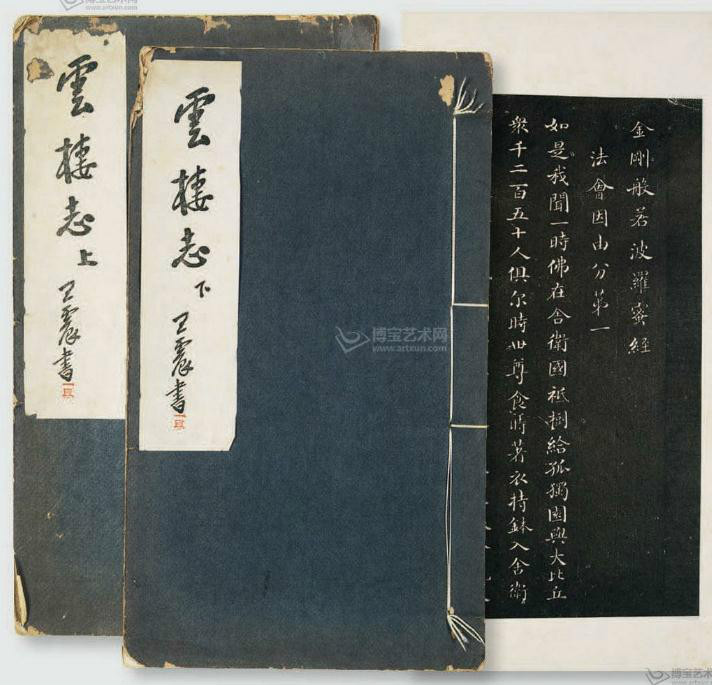 雲棲志上
王震書
雲棲志下
王震書
金剛般若波羅蜜經
法會因由分第一
如是我聞一時佛在舍衛國祗樹給孤獨園與大比丘
衆千二百五十人俱尔時世尊食時著衣持鉢入舍衛
博宝艺术网
www.artxun.com